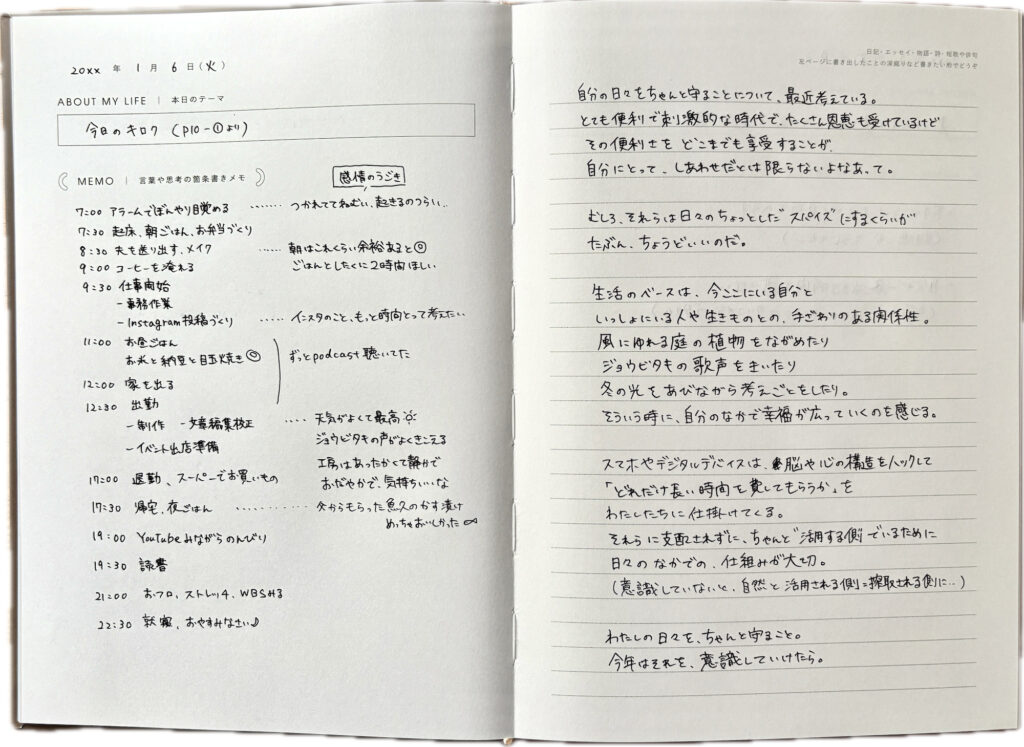 20xx 年 1 月 6 日 (火)
ABOUT MY LIFE | 本日のテーマ
今日のキロク (P10-①より)
MEMO | 言葉や思考の箇条書きメモ
感情のうごき
7:00 アラームでぼんやり目覚める ...... つかれててねむい、起きるのつらい..
7:30 起床、朝ごはん、お弁当づくり
8:30 夫を送り出す、メイク ...... 朝はこれくらい余裕あると◎
9:00 コーヒーを淹れる ごはんとしたくに2時間ほしい
9:30 仕事開始
- 事務作業
- Instagram投稿づくり ...... インスタのこと、もっと時間とって考えたい
11:00 お昼ごはん
お米と納豆と目玉焼き◎ ずっとpodcast聴いてた
12:00 家を出る
12:30 出勤
- 制作 - 文章編集校正 .... 天気がよくて最高
ジョウビタキの声がよくきこえる
- イベント出店準備
工房はあったかくて静かで
17:00 退勤、スーパーでお買いもの おだやかで、気持ちいいな
17:30 帰宅、夜ごはん .......... 父からもらった魚久のかす漬け
めっちゃおいしかった
19:00 Youtubeみながらのんびり
19:30 読書
21:00 おフロ、ストレッチ、WBSみる
22:30 就寝、おやすみなさい♪
日記・エッセイ・物語・詩・短歌や俳句
左ページに書き出したことの深掘りなど書きたい形でどうぞ
自分の日々をちゃんと守ることについて、最近考えている。
とても便利で刺激的な時代で、たくさん恩恵も受けているけど
その便利さを どこまでも享受することが、
自分にとって、しあわせだとは限らないよなあって。
むしろ、それらは日々のちょっとした"スパイス"にするくらいが
たぶん、ちょうどいいのだ。
生活のベースは、今ここにいる自分と
いっしょにいる人や生きものとの、手ざわりのある関係性。
風にゆれる庭の植物をながめたり
ジョウビタキの歌声をきいたり
冬の光をあびながら考えごとをしたり。
そういう時に、自分のなかで幸福が広っていくのを感じる。
スマホやデジタルデバイスは、脳や心の構造をハックして
「どれだけ長い時間を費してもらうか」を
わたしたちに仕掛けてくる。
それらに支配されずに、ちゃんと"活用する側"でいるために
日々のなかでの、仕組みが大切。
(意識していないと、自然と活用される側=搾取される側に…)
わたしの日々を、ちゃんと守ること。
今年はそれを、意識していけたら。